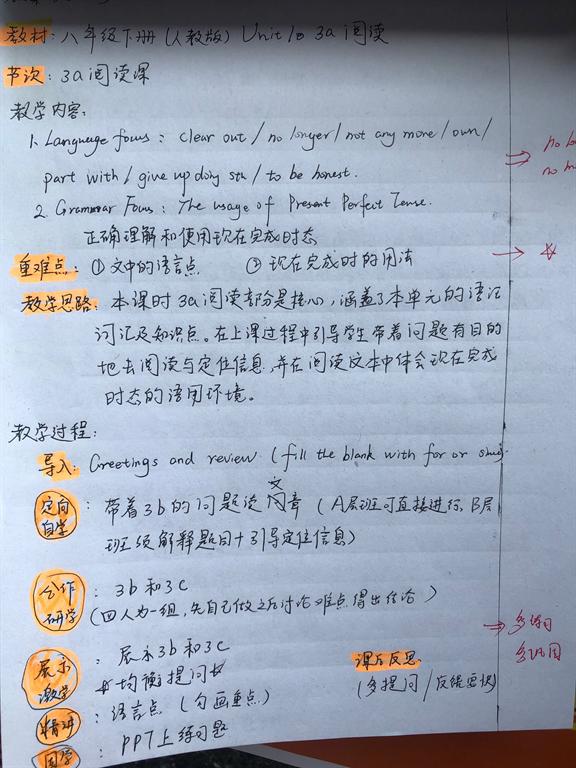 教材：八年级下册（人教版）Unit 10 3a 阅读
节次：3a阅读课
教学内容：
1. Language focus: clear out / no longer / not any more / own /
part with / give up doing sth / to be honest.
2. Grammar Focus: The usage of Present Perfect Tense.
正确理解和使用现在完成时态
重难点：①文中的语言点 ②现在完成时的用法
教学思路：本课时3a阅读部分是核心，涵盖了本单元的语法
词汇及知识点。在上课过程中引导学生带着问题有目的
地去阅读与定位信息，并在阅读文本中体会现在完成
时态的语用环境。
教学过程：
导入：Greetings and review (fill the blank with for or since)
定向自学：带着3b的问题读文章（A层班可直接进行，B层
班须解释题目+引导定位信息）
合作研学：3b和3c
（四人为一组，先自己做之后讨论难点得出结论）
展示激学：展示3b和3c
均衡提问
精讲：语言点（勾画重点）
固学：PPT上练习题
课后反思
（多提问/反馈
no
no
多练习
多巩固